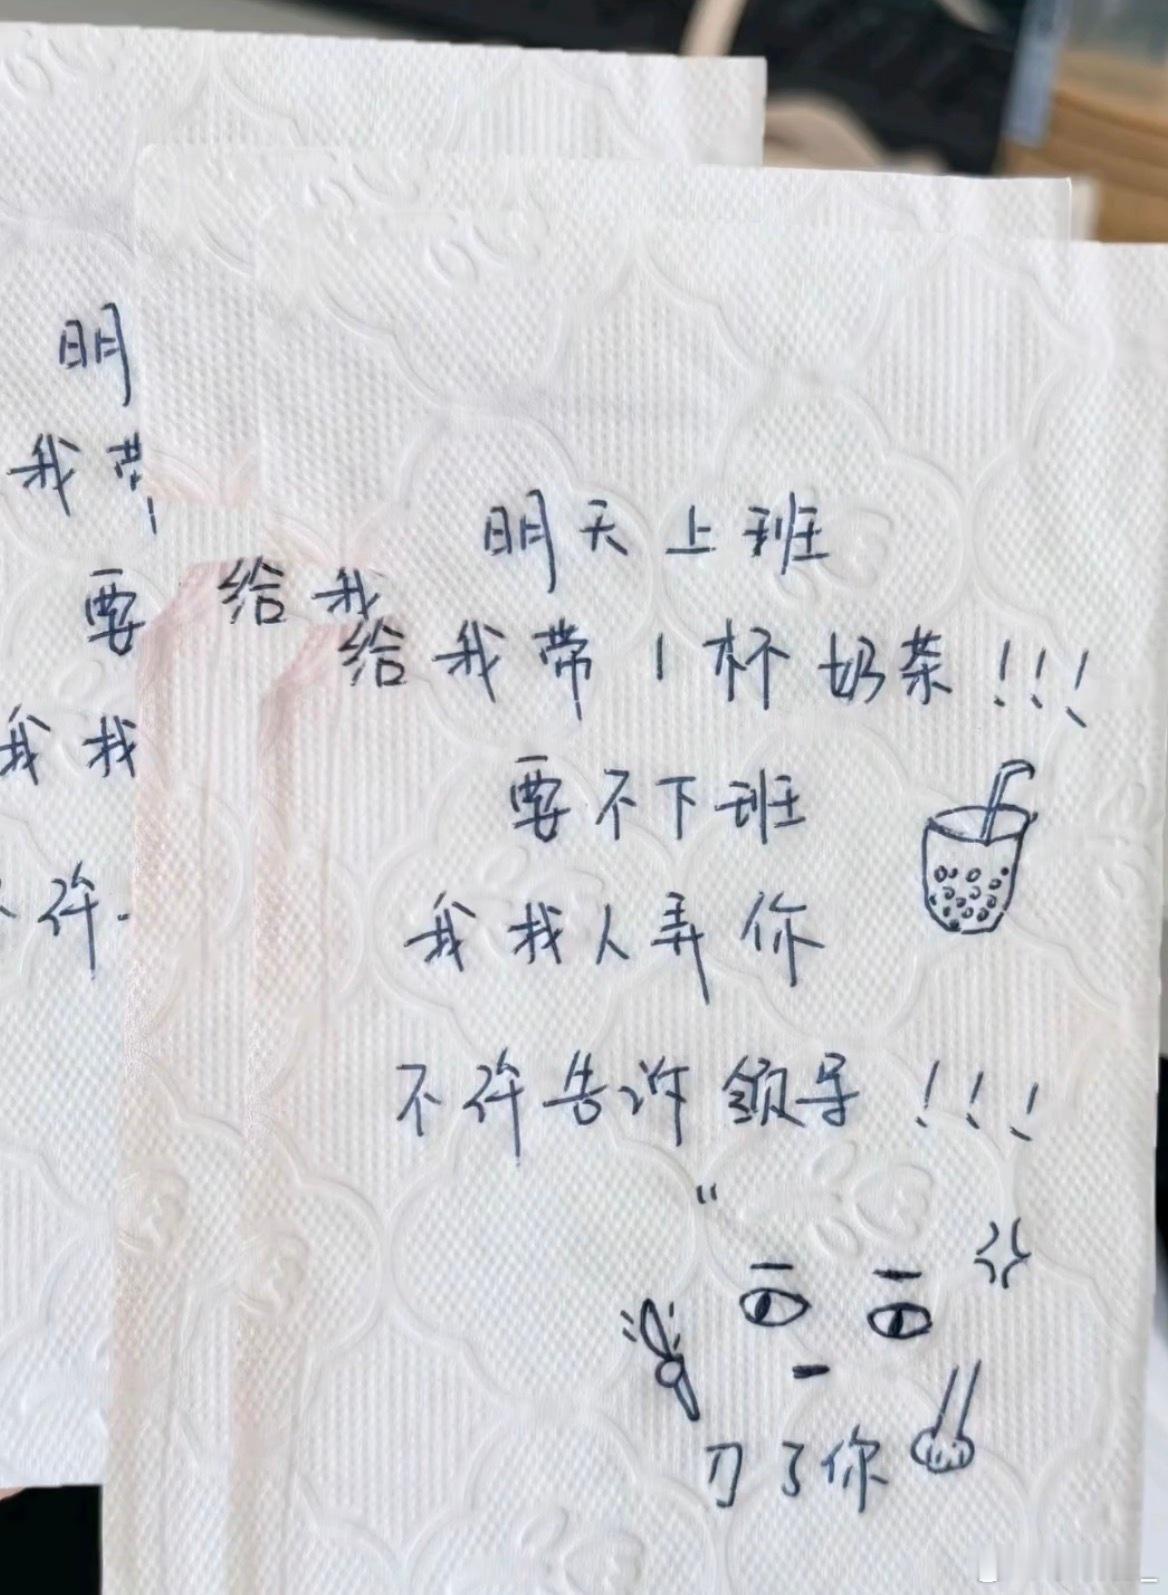 明
我带1
要
我找
许
给我
明天上班
给我带1杯奶茶!!!
要不下班
我找人弄你
不许告诉领导!!!
刀了你